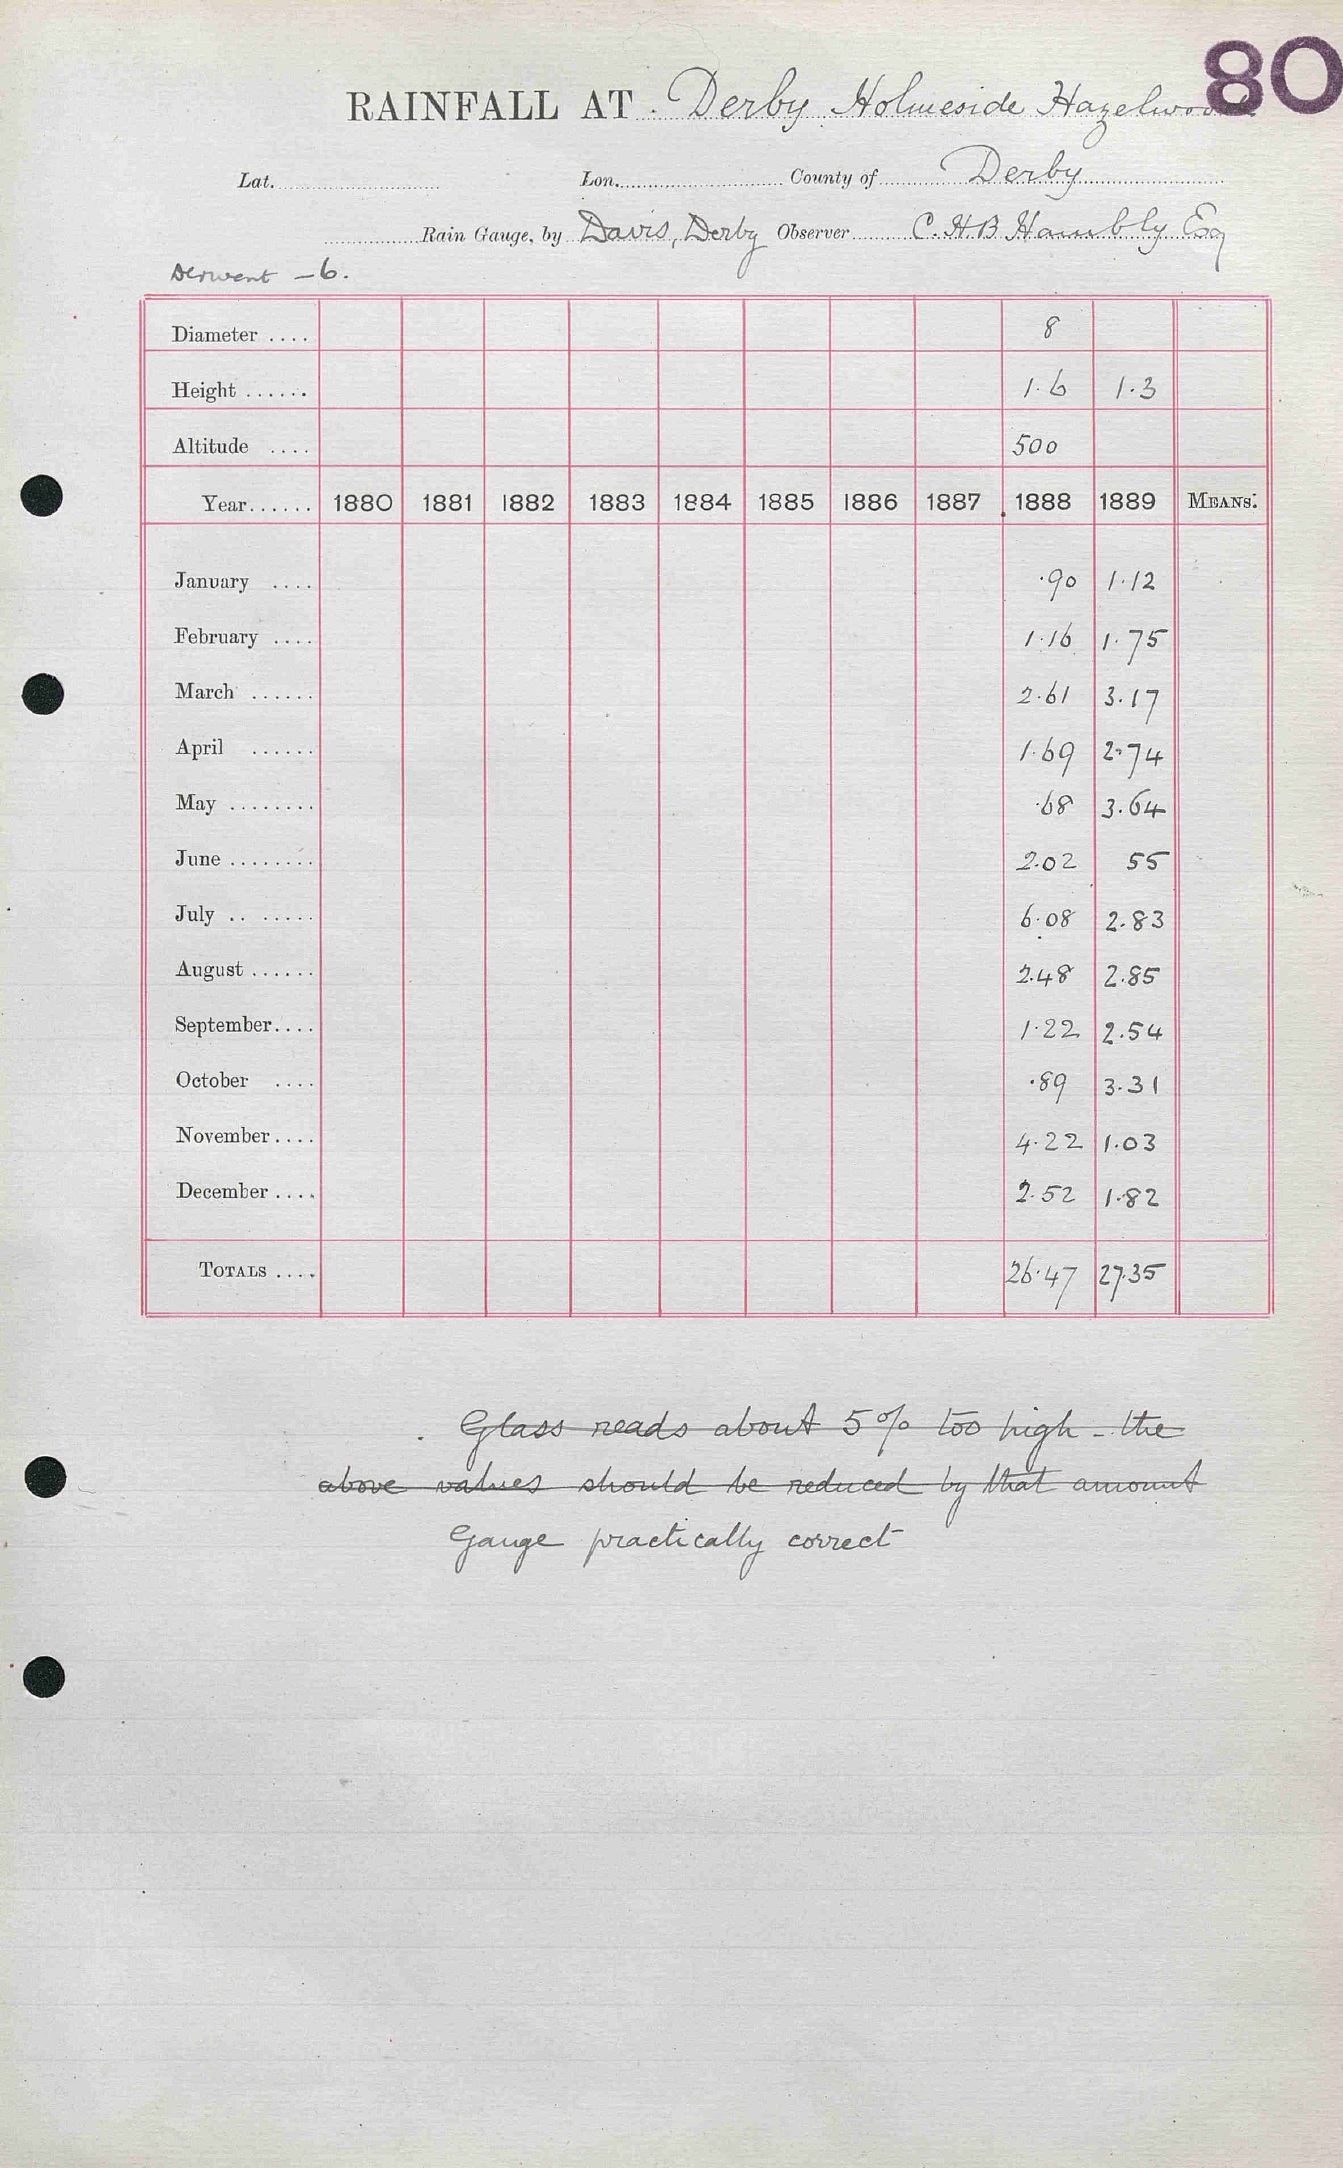 80
RAINFALL AT Derby Holmeside Hazelwood
Lat. Lon. County of Derby
Rain Gauge, by Davis, Derby Observer C. H B Hambly Esq
Derwent – 6.
Diameter .... 8
Height ...... 1.6 1.3
Altitude .... 500
Year...... 1880 1881 1882 1883 1884 1885 1886 1887 1888 1889 MEANS.
January .... .90 1.12
February .... 1.16 1.75
March ...... 2.61 3.17
April ...... 1.69 2.74
May ........ .68 3.64
June ........ 2.02 55
July .. ..... 6.08 2.83
August ...... 2.48 2.85
September.... 1.22 2.54
October .... .89 3.31
November.... 4.22 1.03
December .... 2.52 1.82
TOTALS .... 26.47 27.35
Glass reads about 5% too high – the
above values should be reduced by that amount
Gauge practically correct